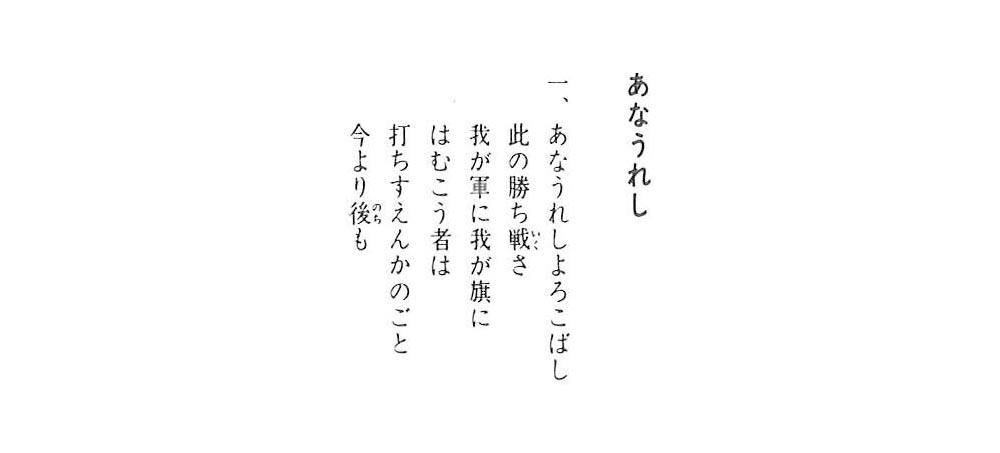 あなうれし
一、あなうれしよろこばし
此の勝ち戦さ
我が軍に我が旗に
はむこう者は
打ちすえんかのごと
今より後も